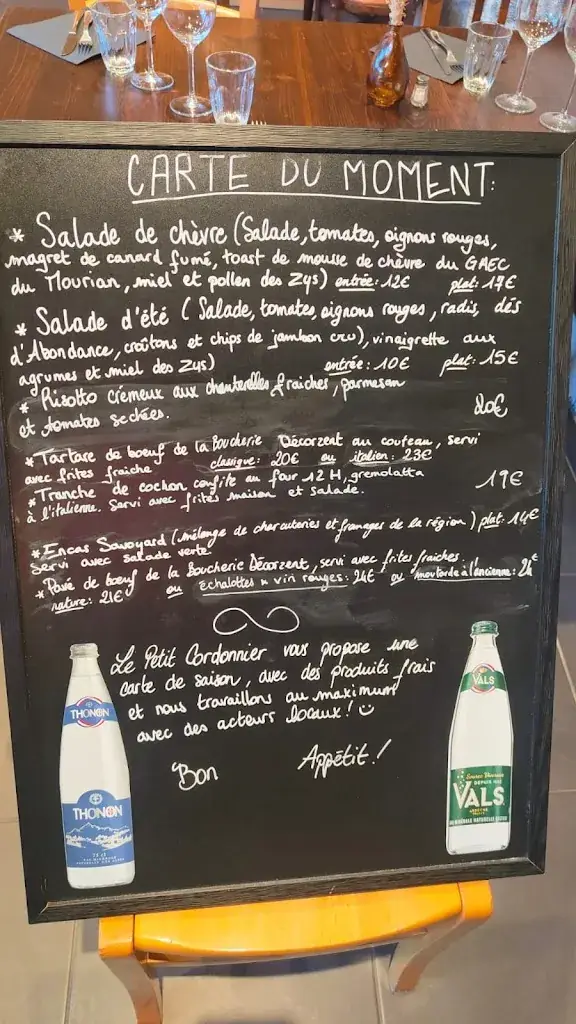 CARTE DU MOMENT:
* Salade de chèvre (Salade, tomates, oignons rouges,
magret de canard fumé, toast de mousse de chèvre du GAEC
du Mourian, miel et pollen des Zys) entrée: 12€ plat: 17€
* Salade d'été ( Salade, tomates, oignons rouges, radis, dés
d'Abondance, croûtons et chips de jambon cru), vinaigrette aux
agrumes et miel des Zys) entrée: 10€ plat: 15€
* Risotto crémeux aux chanterelles fraiches, parmesan
et tomates sechées. 20€
* Tartare de boeuf de la Boucherie Décorzent au couteau, servi
avec frites fraiche classique: 20€ ou italien: 23€
* Tranche de cochon confite au four 12H, gremolatta
à l'italienne. Servi avec frites maison et salade. 19€
* Encas Savoyard (mélange de charcuteries et fromages de la région) plat: 14€
Servi avec salade verte
* Pavé de boeuf de la Boucherie Décorzent, servi avec frites fraiches
nature: 21€ ou échalottes x vin rouges: 24€ ou moutarde à l'ancienne: 24€
Le Petit Cordonnier vous propose une
carte de saison, avec des produits frais
et nous travaillons au maximum
avec des acteurs locaux! ☺
Bon Appétit!
THONON
THONON
VALS
DEPUIS
VALS